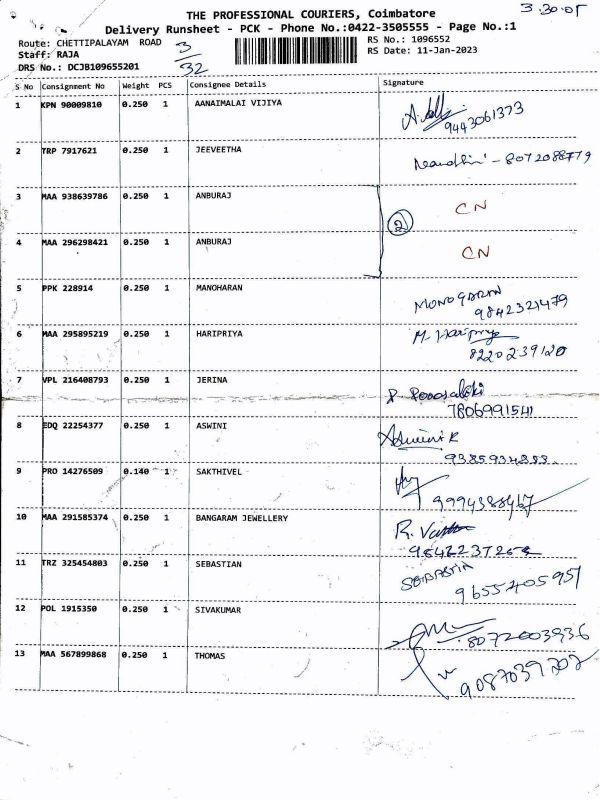 THE PROFESSIONAL COURIERS, Coimbatore
3-30-05
Delivery Runsheet - PCK - Phone No.:0422-3505555 - Page No.:1
Route: CHETTIPALAYAM ROAD
RS No.: 1096552
Staff: RAJA
RS Date: 11-Jan-2023
DRS No.: DCJB109655201
3/32
S No Consignment No Weight PCS Consignee Details Signature
1 KPN 90009810 0.250 1 AANAIMALAI VIJIYA
9443061373
2 TRP 7917621 0.250 1 JEEVEETHA Nandhini - 8072088779
3 MAA 938639786 0.250 1 ANBURAJ CN
2
4 MAA 296298421 0.250 1 ANBURAJ CN
5 PPK 228914 0.250 1 MANOHARAN MONOGARAN
9842321479
6 MAA 295895219 0.250 1 HARIPRIYA M. Haripriya
8220239120
7 VPL 216408793 0.250 1 JERINA
7806991541
8 EDQ 22254377 0.250 1 ASWINI Ashwini R
9385934253
9 PRO 14276509 0.140 1 SAKTHIVEL
9994388467
10 MAA 291585374 0.250 1 BANGARAM JEWELLERY R.
11 TRZ 325454803 0.250 1 SEBASTIAN SEBASTIN
9655405957
12 POL 1915350 0.250 1 SIVAKUMAR
8072003936
13 MAA 567899868 0.250 1 THOMAS
9087039202